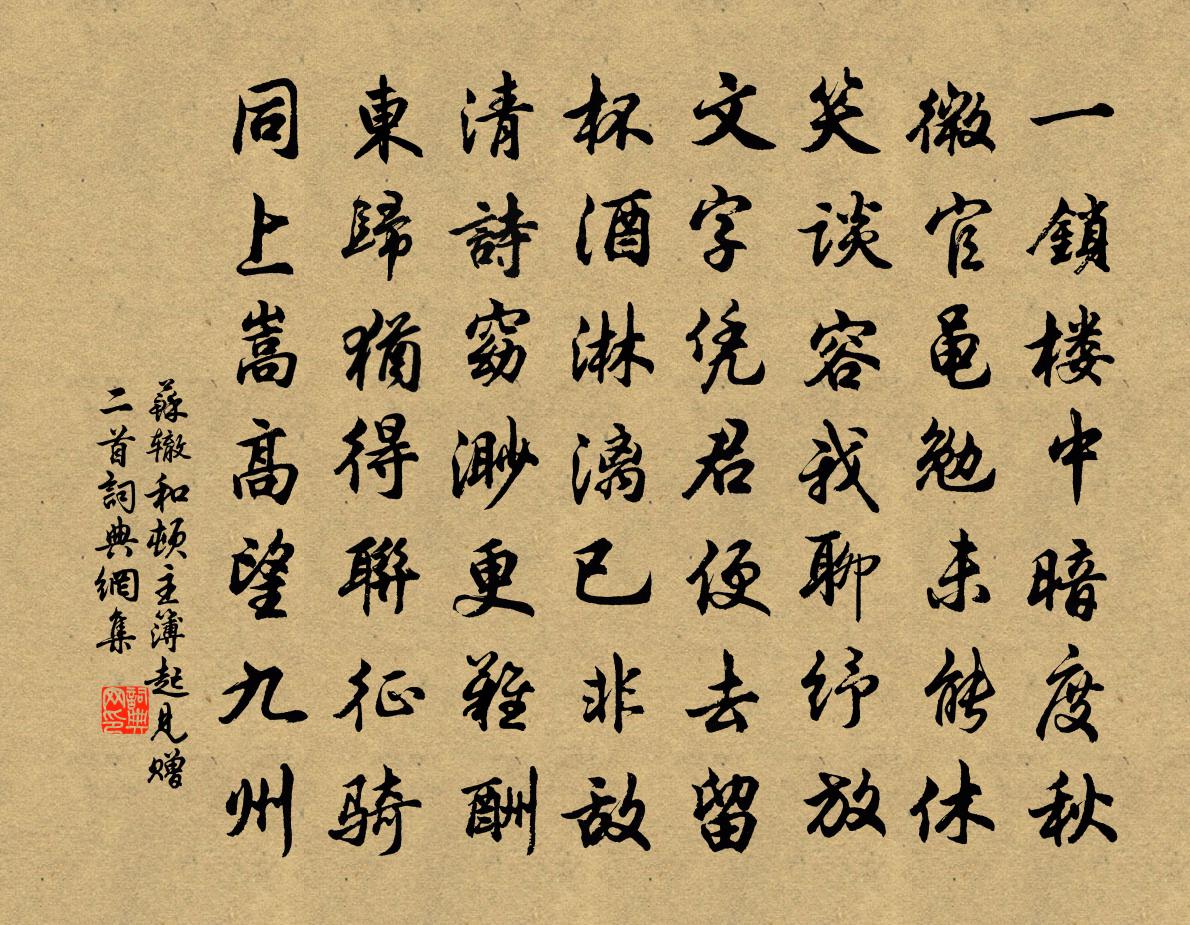 一鎖楼中暗度秋
微官黾勉未能休
笑谈容我聊纾放
文字凭君便去留
杯酒淋漓已非敌
清詩窈渺更難酬
東歸猶得聯征骑
同上嵩高望九州
蘇辙和頓主簿起見赠
二首詞典網集
詞典网印